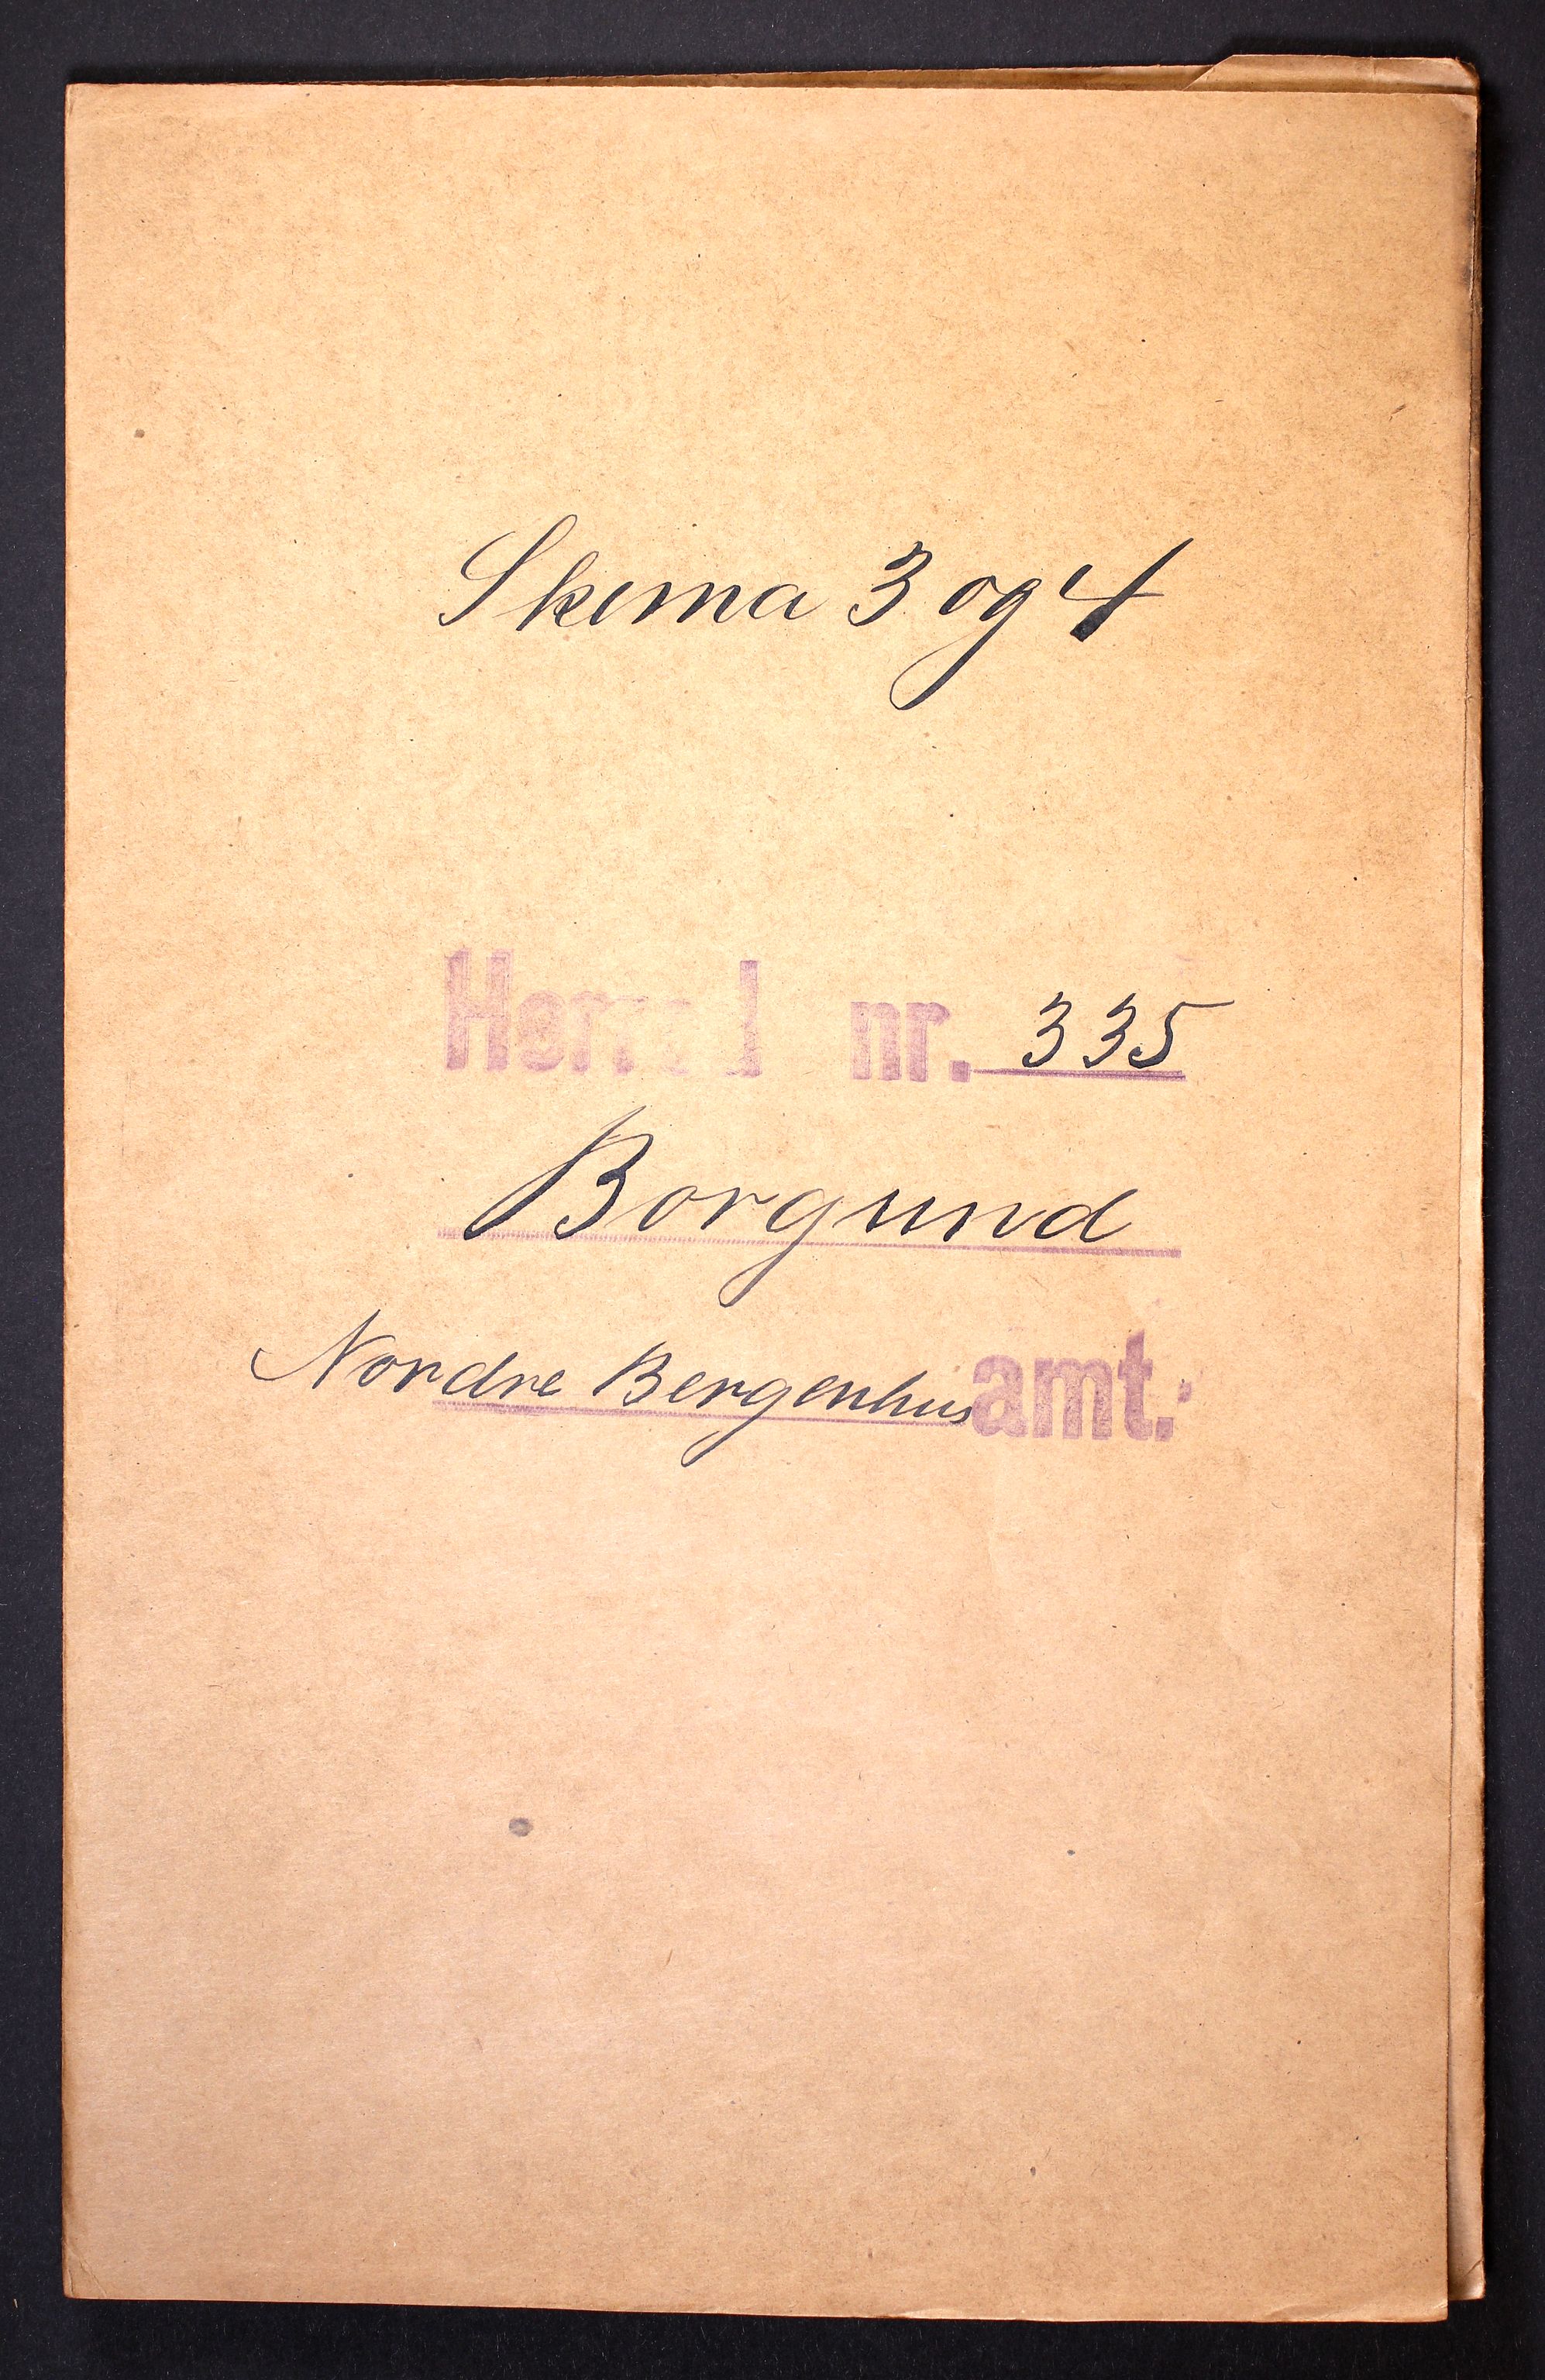 Skema 3 og 4
Herred nr. 335
Borgund
Nordre Bergenhus amt.